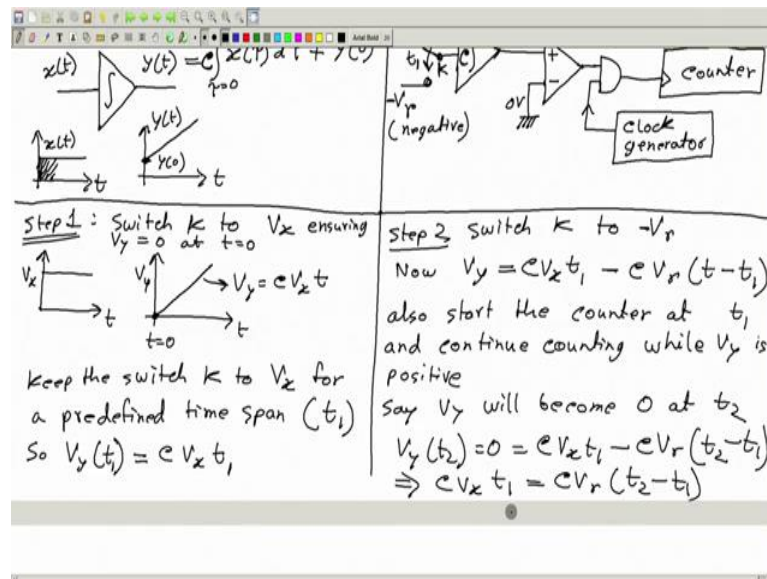 x(t)
y(t) = c∫ x(τ) dτ + y(0)
τ=0
∫
x(t)
t
y(t)
y(0)
t
t₁
K
C
-Vr
(negative)
+
-
0V
counter
clock
generator
Step 1 : Switch K to Vx ensuring
Vy = 0 at t=0
Vx
t
Vy
Vy = c Vx t
t
t=0
Keep the switch K to Vx for
a predefined time span (t₁)
So Vy(t₁) = c Vx t₁
Step 2 Switch K to -Vr
Now Vy = c Vx t₁ - c Vr (t-t₁)
also start the counter at t₁
and continue counting while Vy is
positive
Say Vy will become 0 at t₂
Vy(t₂) = 0 = c Vx t₁ - c Vr (t₂-t₁)
⇒ c Vx t₁ = c Vr (t₂-t₁)